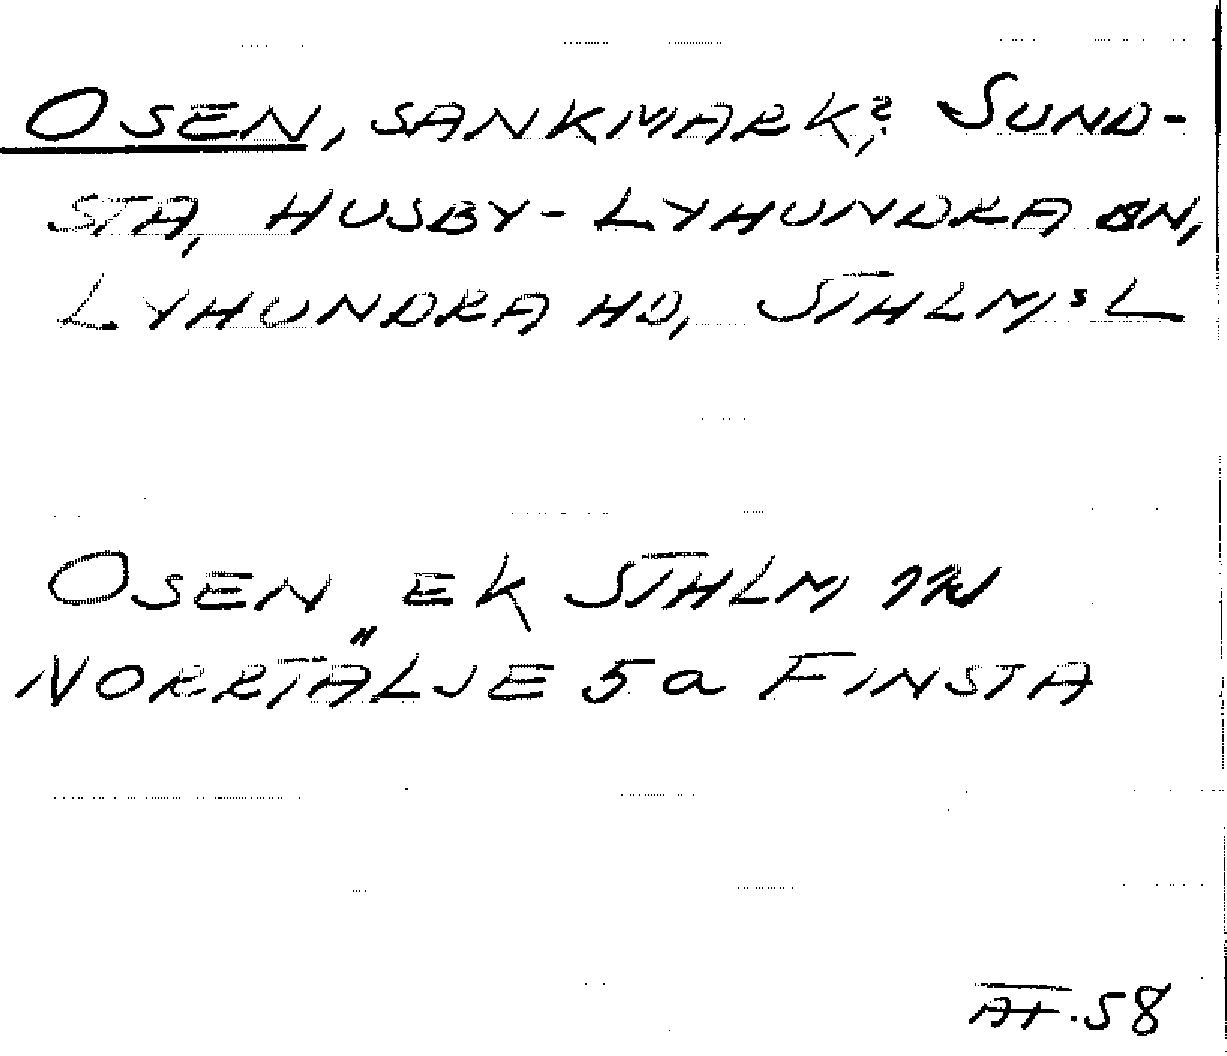 OSEN, SANKMARK?, SUND-
STA, HUSBY-LYHUNDRA SN,
LYHUNDRA HD, STHLM:S L
OSEN EK STHLM
NORRTÄLJE 5a FINSTA
58